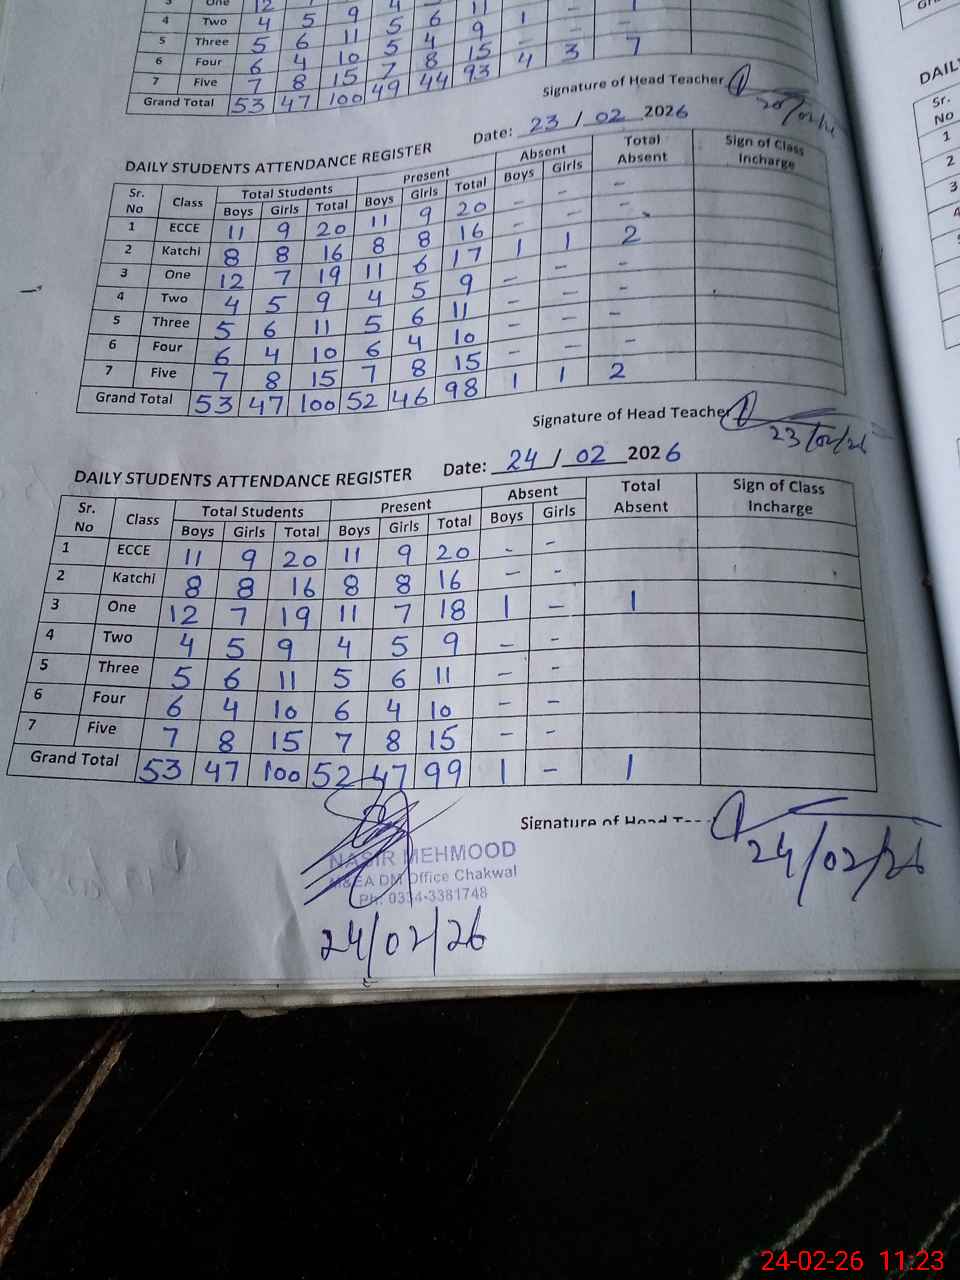 3 One 12
4 Two 4 5 9 5 6 11 1 -
5 Three 5 6 11 5 4 9 - -
6 Four 6 4 10 7 8 15 4 3 7
7 Five 7 8 15 49 44 93
Grand Total 53 47 100
Signature of Head Teacher
DAILY STUDENTS ATTENDANCE REGISTER Date: 23 / 02 2026
Sr. No Class Total Students Present Absent Total Absent Sign of Class Incharge
Boys Girls Total Boys Girls Total Boys Girls
1 ECCE 11 9 20 11 9 20 - - -
2 Katchi 8 8 16 8 8 16 - - -
3 One 12 7 19 11 6 17 1 1 2
4 Two 4 5 9 4 5 9 - - -
5 Three 5 6 11 5 6 11 - - -
6 Four 6 4 10 6 4 10 - - -
7 Five 7 8 15 7 8 15 - - -
Grand Total 53 47 100 52 46 98 1 1 2
Signature of Head Teacher
23/02/26
DAILY STUDENTS ATTENDANCE REGISTER Date: 24 / 02 2026
Sr. No Class Total Students Present Absent Total Absent Sign of Class Incharge
Boys Girls Total Boys Girls Total Boys Girls
1 ECCE 11 9 20 11 9 20 - -
2 Katchi 8 8 16 8 8 16 - -
3 One 12 7 19 11 7 18 1 - 1
4 Two 4 5 9 4 5 9 - -
5 Three 5 6 11 5 6 11 - -
6 Four 6 4 10 6 4 10 - -
7 Five 7 8 15 7 8 15 - -
Grand Total 53 47 100 52 47 99 1 - 1
Signature of Head
24/02/26
NASIR MEHMOOD
M&EA DM Office Chakwal
Ph: 0334-3381748
24/02/26
DAIL
Sr. No
1
2
3
4
24-02-26 11:23